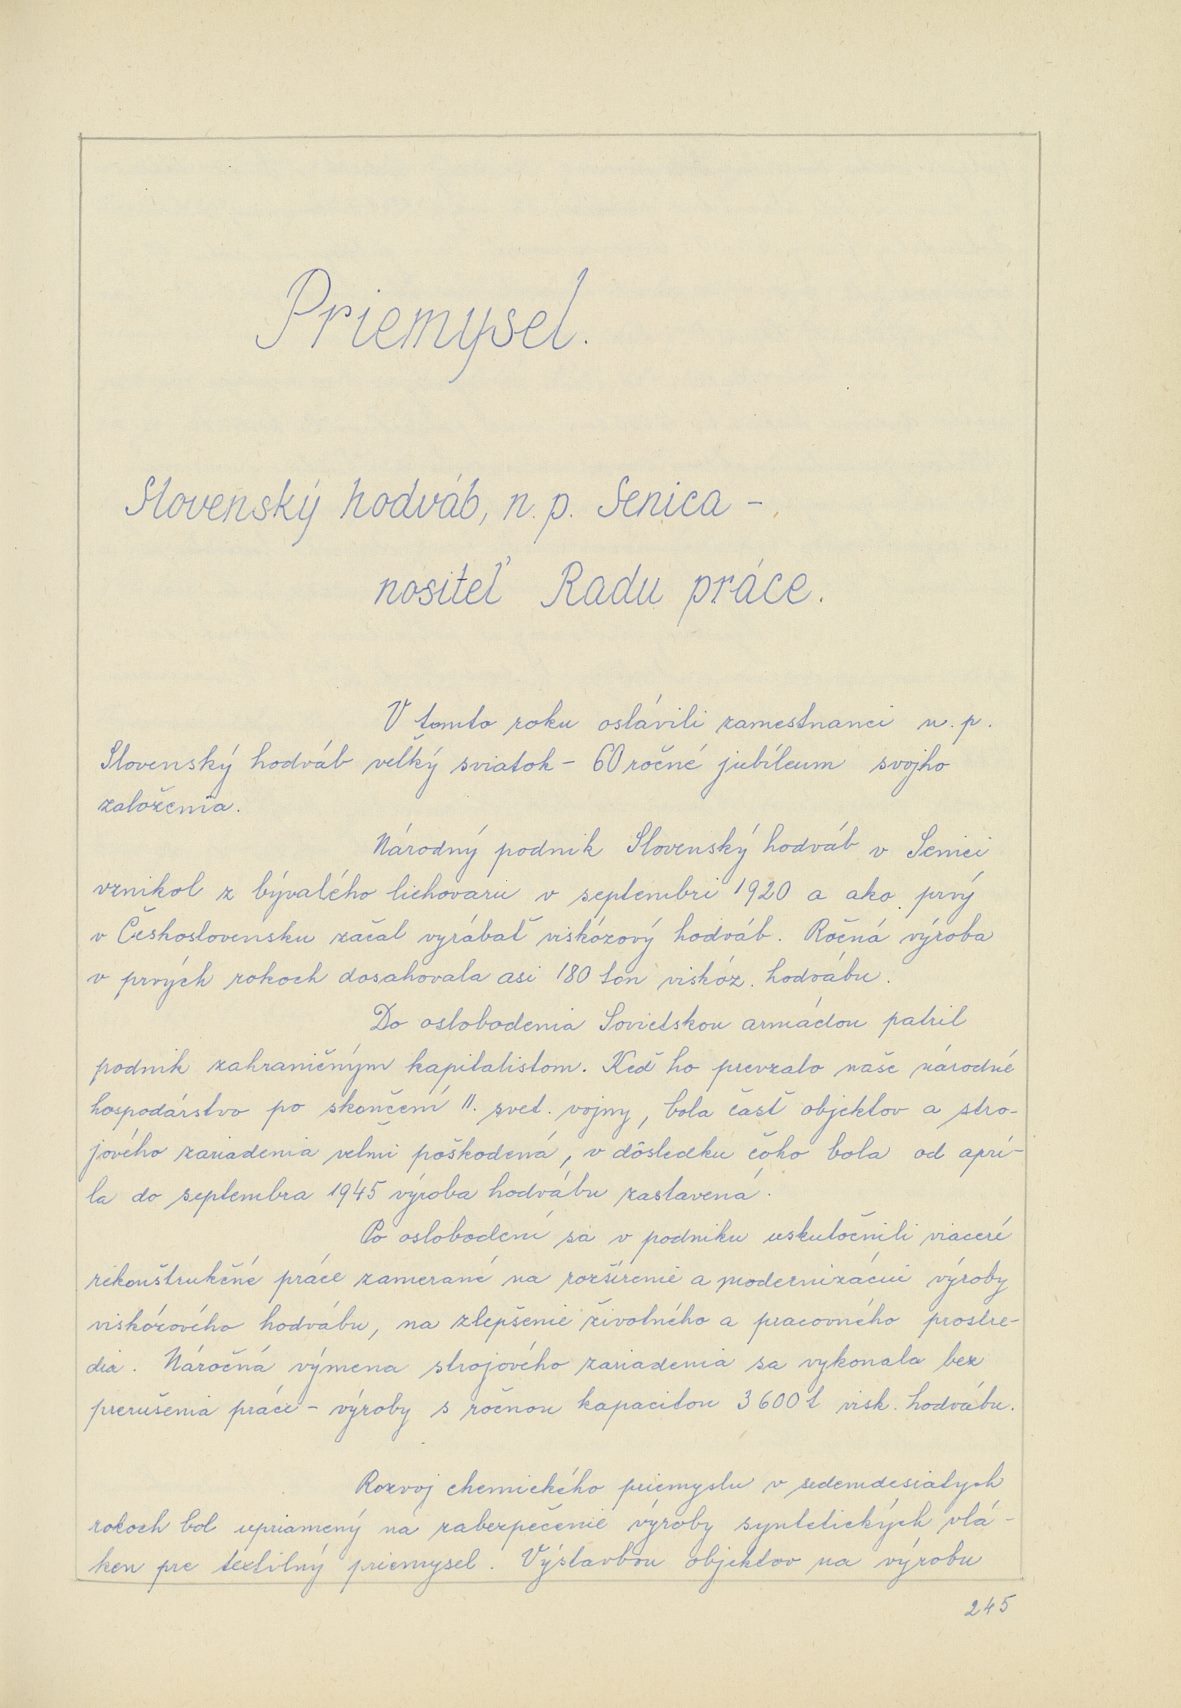 Priemysel.
Slovenský hodváb, n. p. Senica -
nositeľ Radu práce.
V tomto roku oslávili zamestnanci n. p.
Slovenský hodváb veľký sviatok - 60 ročné jubileum svojho
založenia.
Národný podnik Slovenský hodváb v Senici
vznikol z bývalého liehovaru v septembri 1920 a ako prvý
v Československu začal vyrábať viskózový hodváb. Ročná výroba
v prvých rokoch dosahovala asi 180 ton viskóz. hodvábu.
Do oslobodenia Sovietskou armádou patril
podnik zahraničným kapitalistom. Keď ho prevzalo naše národné
hospodárstvo po skončení II. svet. vojny, bola časť objektov a stro-
jového zariadenia veľmi poškodená, v dôsledku čoho bola od aprí-
la do septembra 1945 výroba hodvábu zastavená.
Po oslobodení sa v podniku uskutočnili viaceré
rekonštrukčné práce zamerané na rozšírenie a modernizáciu výroby
viskózového hodvábu, na zlepšenie životného a pracovného prostre-
dia. Náročná výmena strojového zariadenia sa vykonala bez
prerušenia práce - výroby s ročnou kapacitou 3 600 t visk. hodvábu.
Rozvoj chemického priemyslu v sedemdesiatych
rokoch bol upriamený na zabezpečenie výroby syntetických vlá-
ken pre textilný priemysel. Výstavbou objektov na výrobu
245